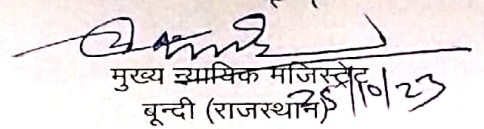 मुख्य न्यायिक मजिस्ट्रेट
बून्दी (राजस्थान) 25/10/23